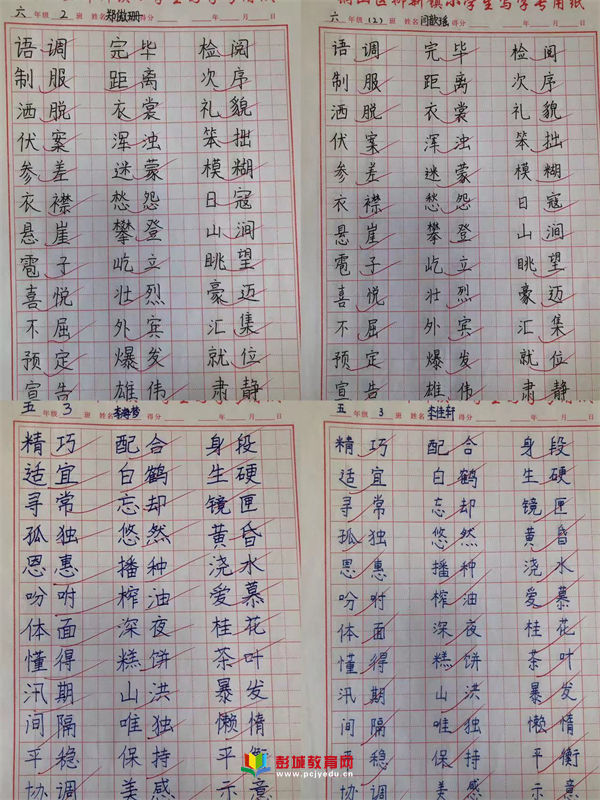 六 年级 2 班 姓名 郑微珊 得分 年 月 日
语调 完毕 检阅
制服 距离 次序
洒脱 衣裳 礼貌
伏案 浑浊 笨拙
参差 迷蒙 模糊
衣襟 愁怨 日寇
悬崖 攀登 山涧
雹子 屹立 眺望
喜悦 壮烈 豪迈
不屈 外宾 汇集
预定 爆发 就位
宣告 雄伟 肃静
小学生写字专用纸
六 年级 (2) 班 姓名 闫歆瑶 得分 年 月 日
语调 完毕 检阅
制服 距离 次序
洒脱 衣裳 礼貌
伏案 浑浊 笨拙
参差 迷蒙 模糊
衣襟 愁怨 日寇
悬崖 攀登 山涧
雹子 屹立 眺望
喜悦 壮烈 豪迈
不屈 外宾 汇集
预定 爆发 就位
宣告 雄伟 肃静
五 年级 3 班 姓名 李海梦 得分 年 月 日
精巧 配合 身段
适宜 白鹤 生硬
寻常 忘却 镜匣
孤独 悠然 黄昏
恩惠 播种 浇水
吩咐 榨油 爱慕
体面 深夜 桂花
懂得 糕饼 茶叶
汛期 山洪 暴发
间隔 唯独 懒惰
平稳 保持 平衡
协调 美感 示意
五 年级 3 班 姓名 李佳轩 得分 年 月 日
精巧 配合 身段
适宜 白鹤 生硬
寻常 忘却 镜匣
孤独 悠然 黄昏
恩惠 播种 浇水
吩咐 榨油 爱慕
体面 深夜 桂花
懂得 糕饼 茶叶
汛期 山洪 暴发
间隔 唯独 懒惰
平稳 保持 平衡
协调 美感 示意
彭城教育网
www.pcjyedu.cn